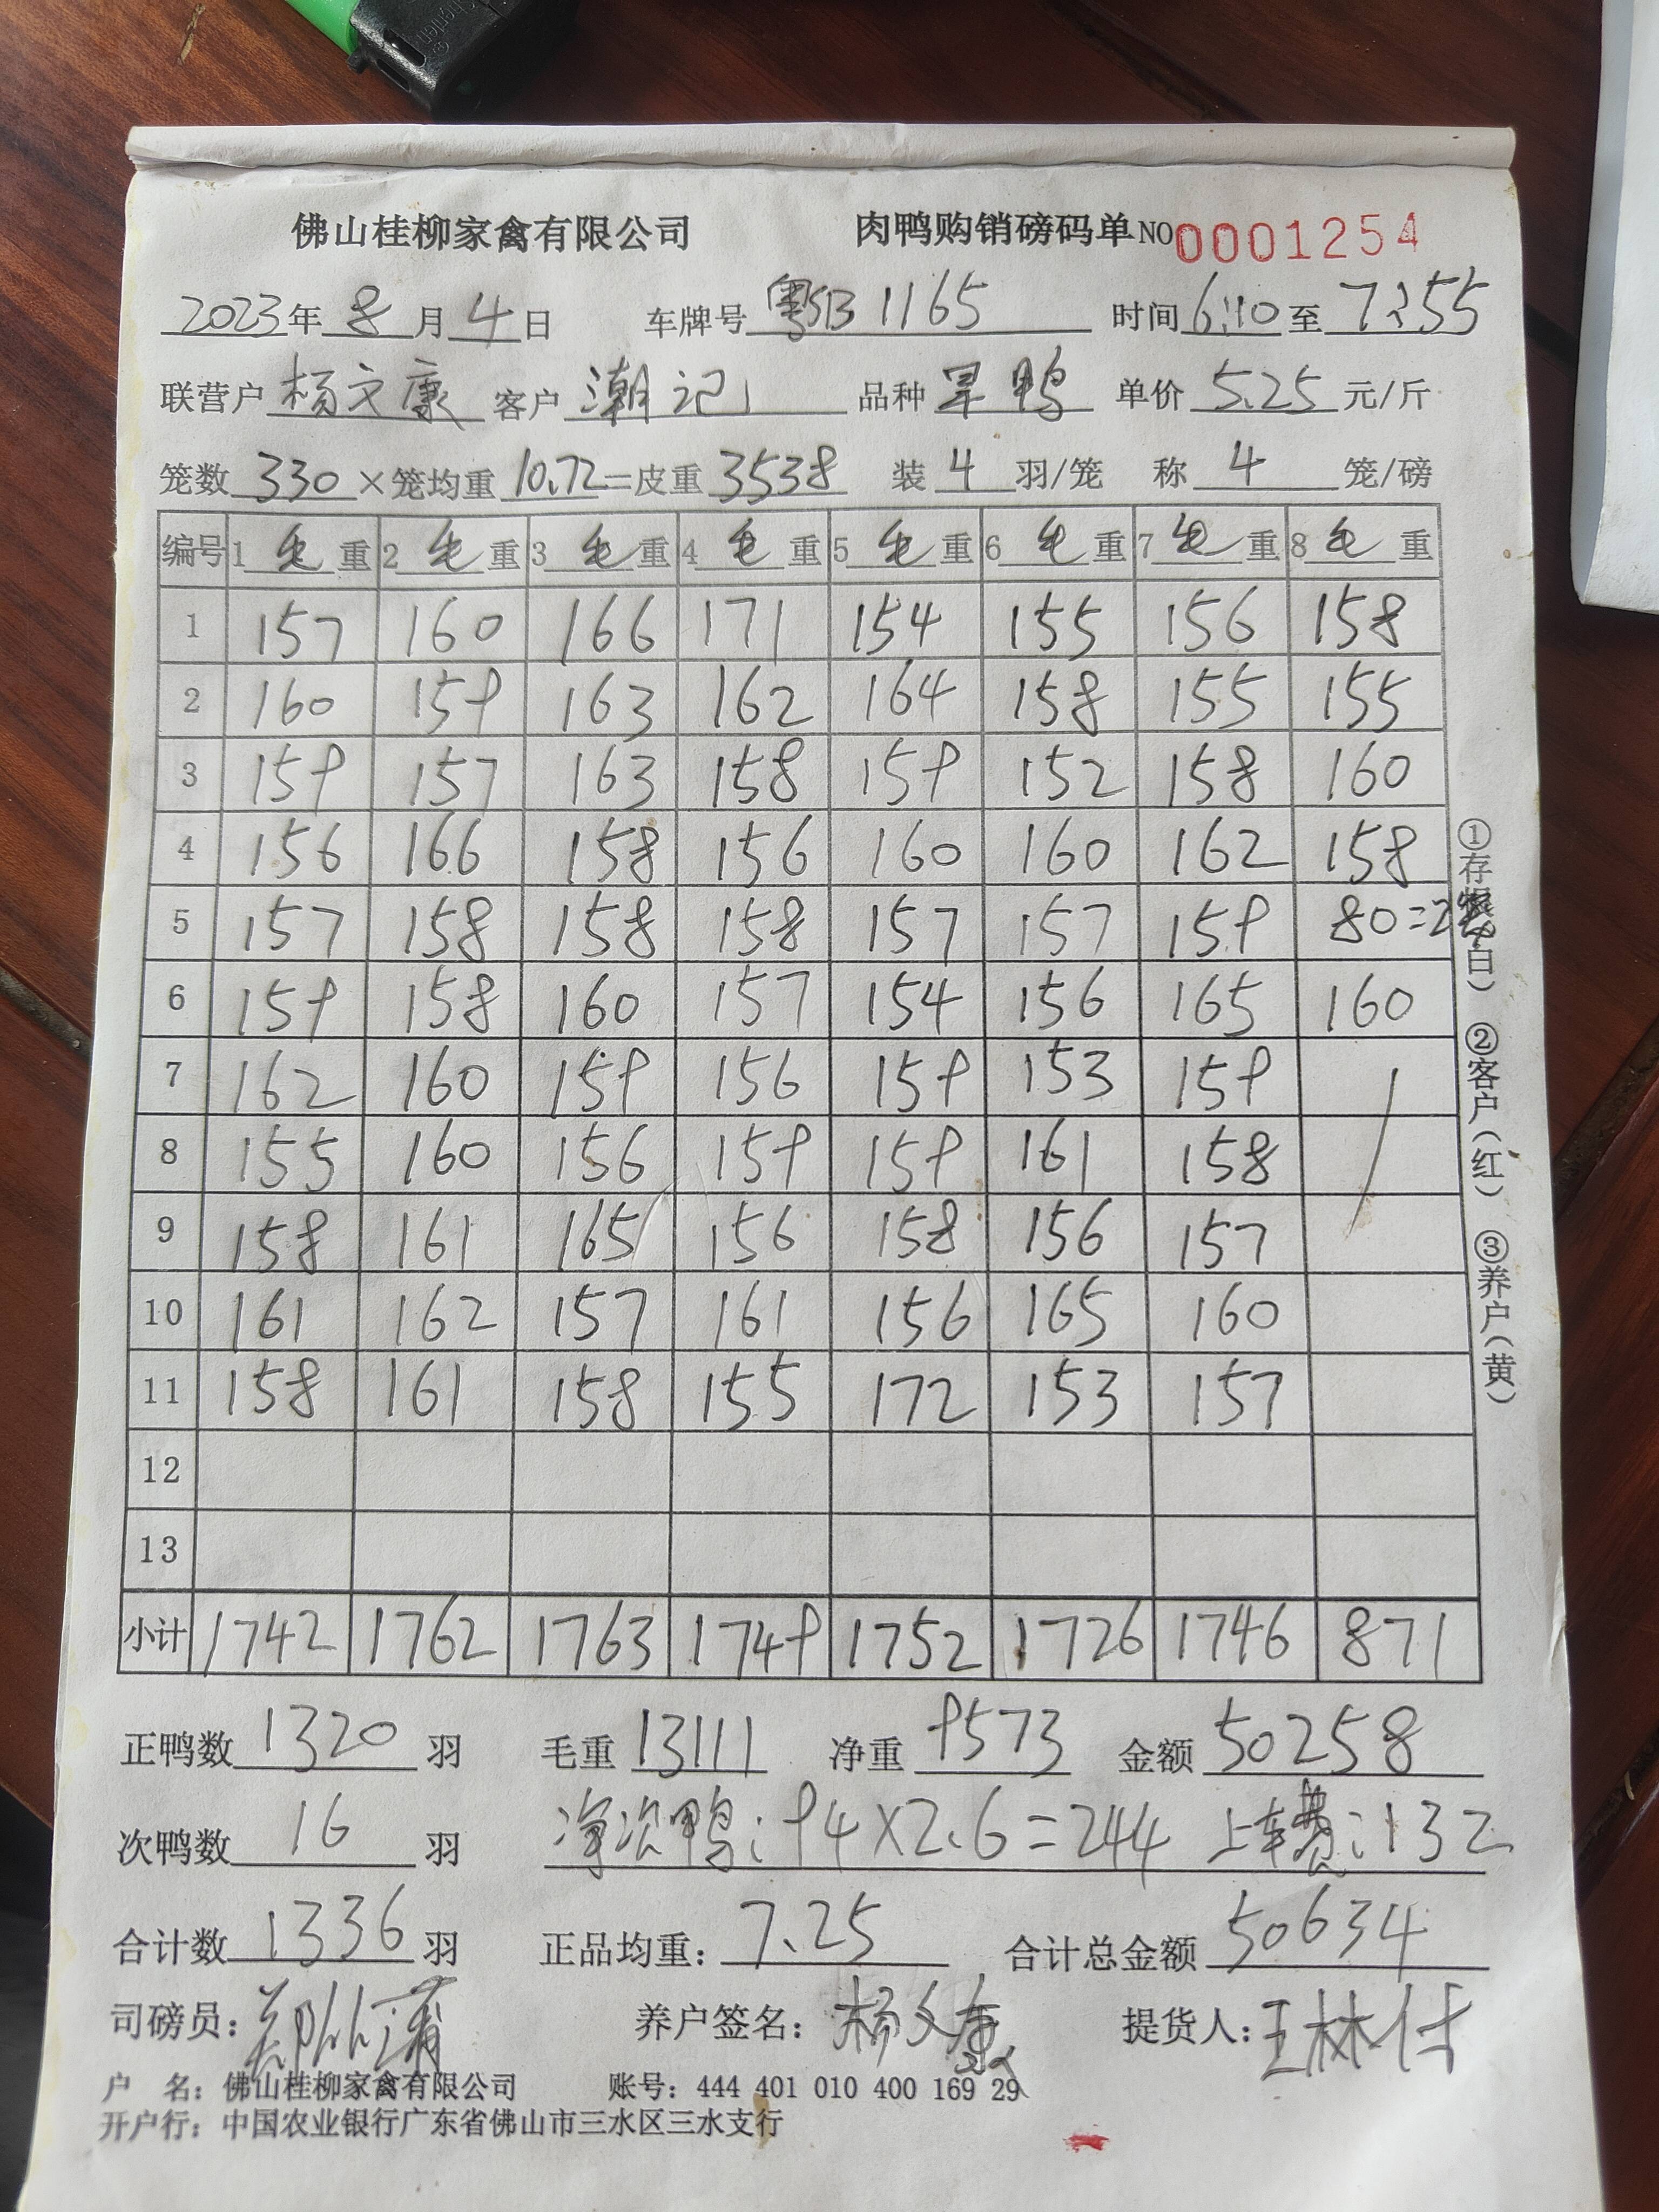 佛山桂柳家禽有限公司 肉鸭购销磅码单 NO 0001254
2023年 8月 4日 车牌号 粤SB 1165 时间 6:10 至 7:55
联营户 杨文康 客户 潮记 品种 旱鸭 单价 5.25 元/斤
笼数 330 ×笼均重 10.72 =皮重 3538 装 4 羽/笼 称 4 笼/磅
编号 1 毛 重 2 毛 重 3 毛 重 4 毛 重 5 毛 重 6 毛 重 7 毛 重 8 毛 重
1 157 160 166 171 154 155 156 158
2 160 159 163 162 164 158 155 155
3 159 157 163 158 159 152 158 160
4 156 166 158 156 160 160 162 158
5 157 158 158 158 157 157 159 80=2
6 159 158 160 157 154 156 165 160
7 162 160 159 156 159 153 159
8 155 160 156 159 159 161 158
9 158 161 165 156 158 156 157
10 161 162 157 161 156 165 160
11 158 161 158 155 172 153 157
12
13
小计 1742 1762 1763 1749 1752 1726 1746 871
①存根(白) ②客户(红) ③养户(黄)
正鸭数 1320 羽 毛重 13111 净重 9573 金额 50258
次鸭数 16 羽 净次鸭: 94×2.6=244 上车费: 132
合计数 1336 羽 正品均重: 7.25 合计总金额 50634
司磅员: 养户签名: 杨文康 提货人: 王林付
户 名: 佛山桂柳家禽有限公司 账号: 444 401 010 400 169 29
开户行: 中国农业银行广东省佛山市三水区三水支行